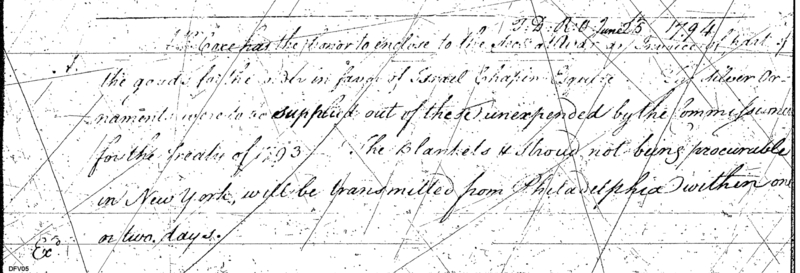 T. D. R. O. June 25th 1794
Mr. Coxe has the honor to enclose to the Secy at War an Invoice of part of
the goods for the order in favor of Israel Chapin Esquire The Silver Or-
naments were to be supplied out of these unexpended by the Commissioners
for the Treaty of 1793. The Blankets & Stroud not being procurable
in New York, will be transmitted from Philadelphia within one
or two days.
Exd
DFV05